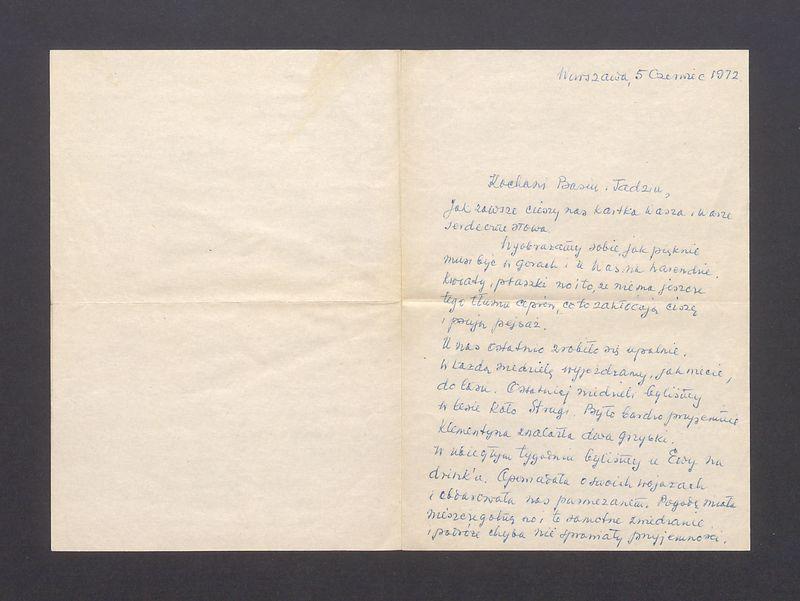 Warszawa, 5 Czerwiec 1972
Kochani Basiu i Tadziu,
Jak zawsze cieszy nas kartka Wasza i Wasze
serdeczne słowa.
Wyobrażamy sobie, jak pięknie
musi być w górach i u Was na Harendzie.
Kwiaty, ptaszki no i to, że niema jeszcze
tego tłumu ceprów, co to zakłócają ciszę
i psują pejzaż.
U nas ostatnio zrobiło się upalnie.
W każdą niedzielę wyjeżdżamy, jak wiecie,
do lasu. Ostatniej niedzieli byliśmy
w lesie koło Strugi. Było bardzo przyjemnie
Klementyna znalazła dwa grzybki.
W ubiegłym tygodniu byliśmy u Ewy na
drink'u. Opowiadała o swoich wojażach
i obdarowała nas parmezanem. Pogodę miała
nieszczególną no i te samotne zwiedzanie
i podróże chyba nie sprawiały przyjemności.